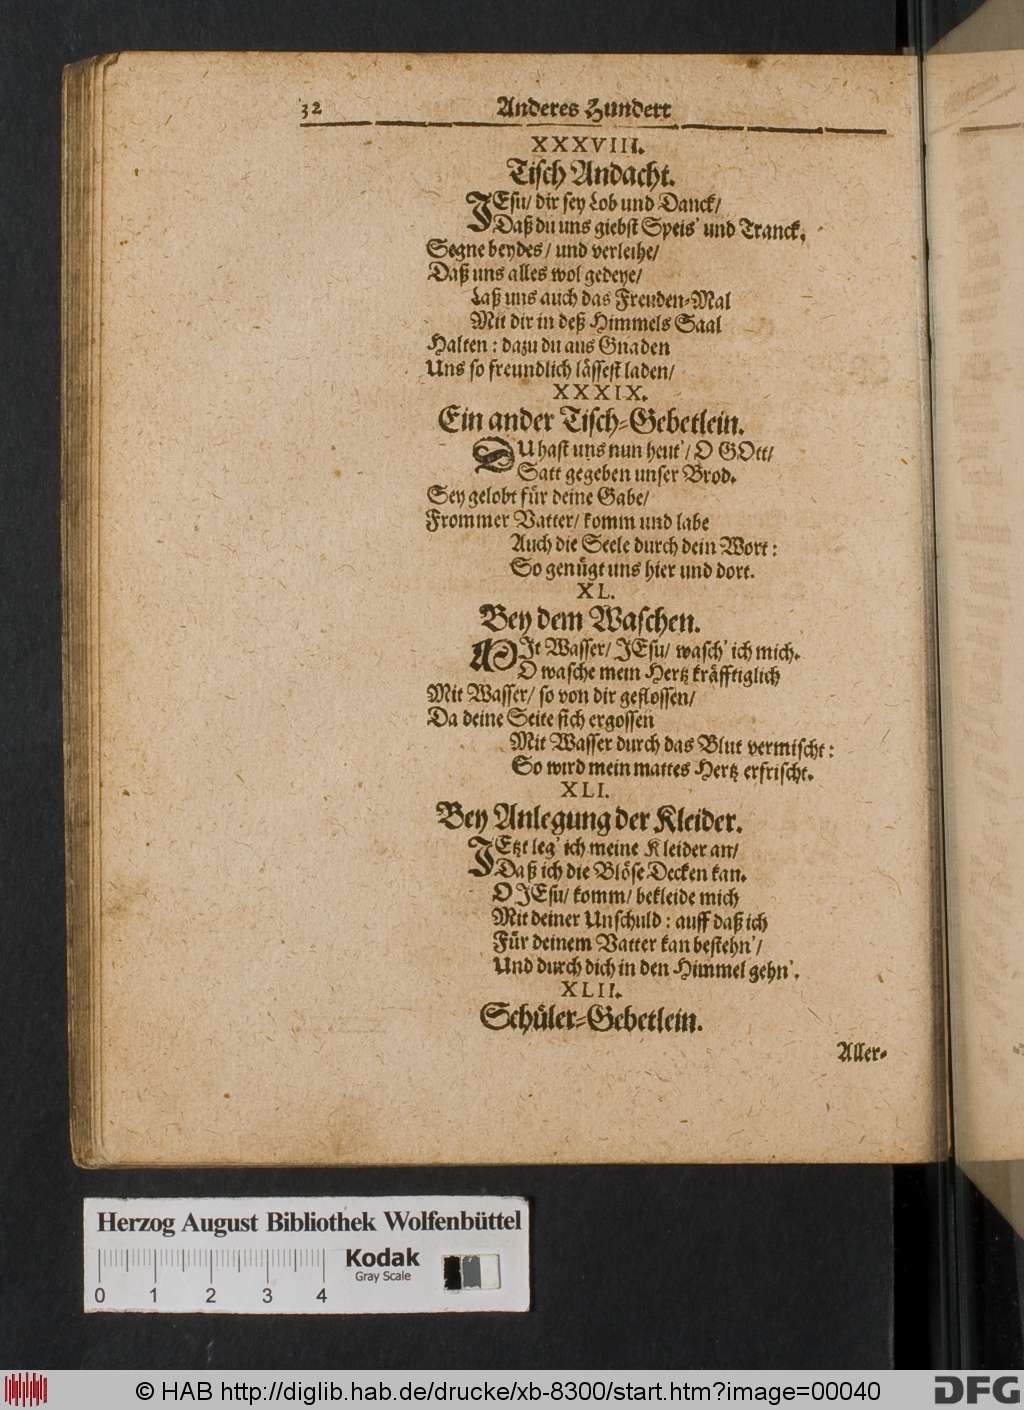 32 Anderes Hundert
XXXVIII.
Tisch Andacht.
JEsu/ dir sey Lob und Danck/
Daß du uns giebst Speis' und Tranck.
Segne beydes/ und verleihe/
Daß uns alles wol gedeye/
Laß uns auch das Freuden-Mal
Mit dir in deß Himmels Saal
Halten: dazu du aus Gnaden
Uns so freundlich lässest laden/
XXXIX.
Ein ander Tisch-Gebetlein.
DU hast uns nun heut'/ O GOtt/
Satt gegeben unser Brod.
Sey gelobt für deine Gabe/
Frommer Vatter/ komm und labe
Auch die Seele durch dein Wort:
So genügt uns hier und dort.
XL.
Bey dem Waschen.
MIt Wasser/ JEsu/ wasch' ich mich.
O wasche mein Hertz kräfftiglich
Mit Wasser/ so von dir geflossen/
Da deine Seite sich ergossen
Mit Wasser durch das Blut vermischt:
So wird mein mattes Hertz erfrischt.
XLI.
Bey Anlegung der Kleider.
JEtzt leg' ich meine Kleider an/
Daß ich die Blöse Decken kan.
O JEsu/ komm/ bekleide mich
Mit deiner Unschuld: auff daß ich
Für deinem Vatter kan bestehn'/
Und durch dich in den Himmel gehn'.
XLII.
Schüler-Gebetlein.
Aller-
Herzog August Bibliothek Wolfenbüttel
Kodak
Gray Scale
0 1 2 3 4
© HAB http://diglib.hab.de/drucke/xb-8300/start.htm?image=00040
DFG